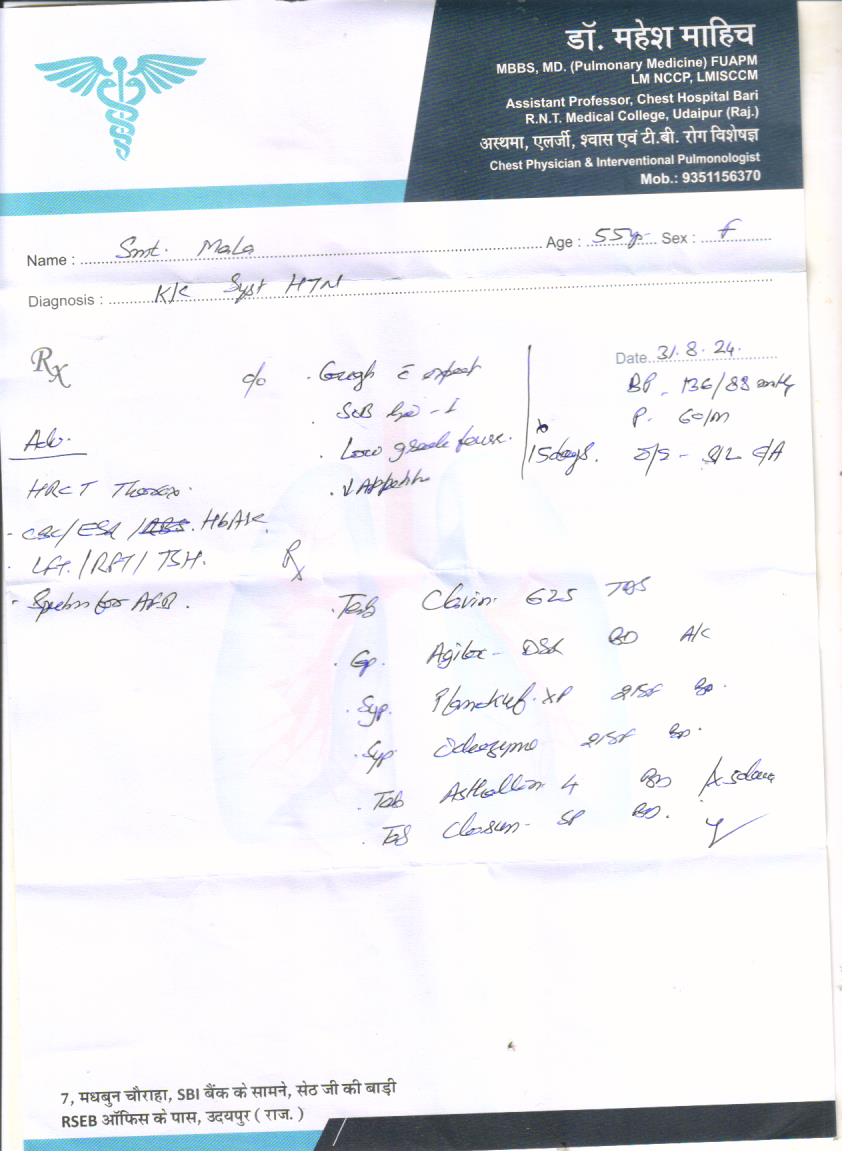 डॉ. महेश माहिच
MBBS, MD. (Pulmonary Medicine) FUAPM
LM NCCP, LMISCCM
Assistant Professor, Chest Hospital Bari
R.N.T. Medical College, Udaipur (Raj.)
अस्थमा, एलर्जी, श्वास एवं टी.बी. रोग विशेषज्ञ
Chest Physician & Interventional Pulmonologist
Mob.: 9351156370
Name : Smt. Mala Age : 55 Sex : F
Diagnosis : K/c Syst HTN
Rx
Date. 31.8.24.
c/o . Cough c expect
BP - 136/88
. SOB
P. 60/m
. Low grade fever.
15 days.
. ↓ Appetite
Adv.
HRCT Thorax.
- CBC/ESR/ HbA1c.
- LFT/RFT/TSH.
- Sputum for AFB.
Rx
. Tab Clavin 625 TDS
. Cap. DSR BD A/C
. Syp. XP BD.
. Syp. BD.
. Tab Asthalin 4 BD
. Tab SP BD.
7, मधबुन चौराहा, SBI बैंक के सामने, सेठ जी की बाड़ी
RSEB ऑफिस के पास, उदयपुर ( राज. )